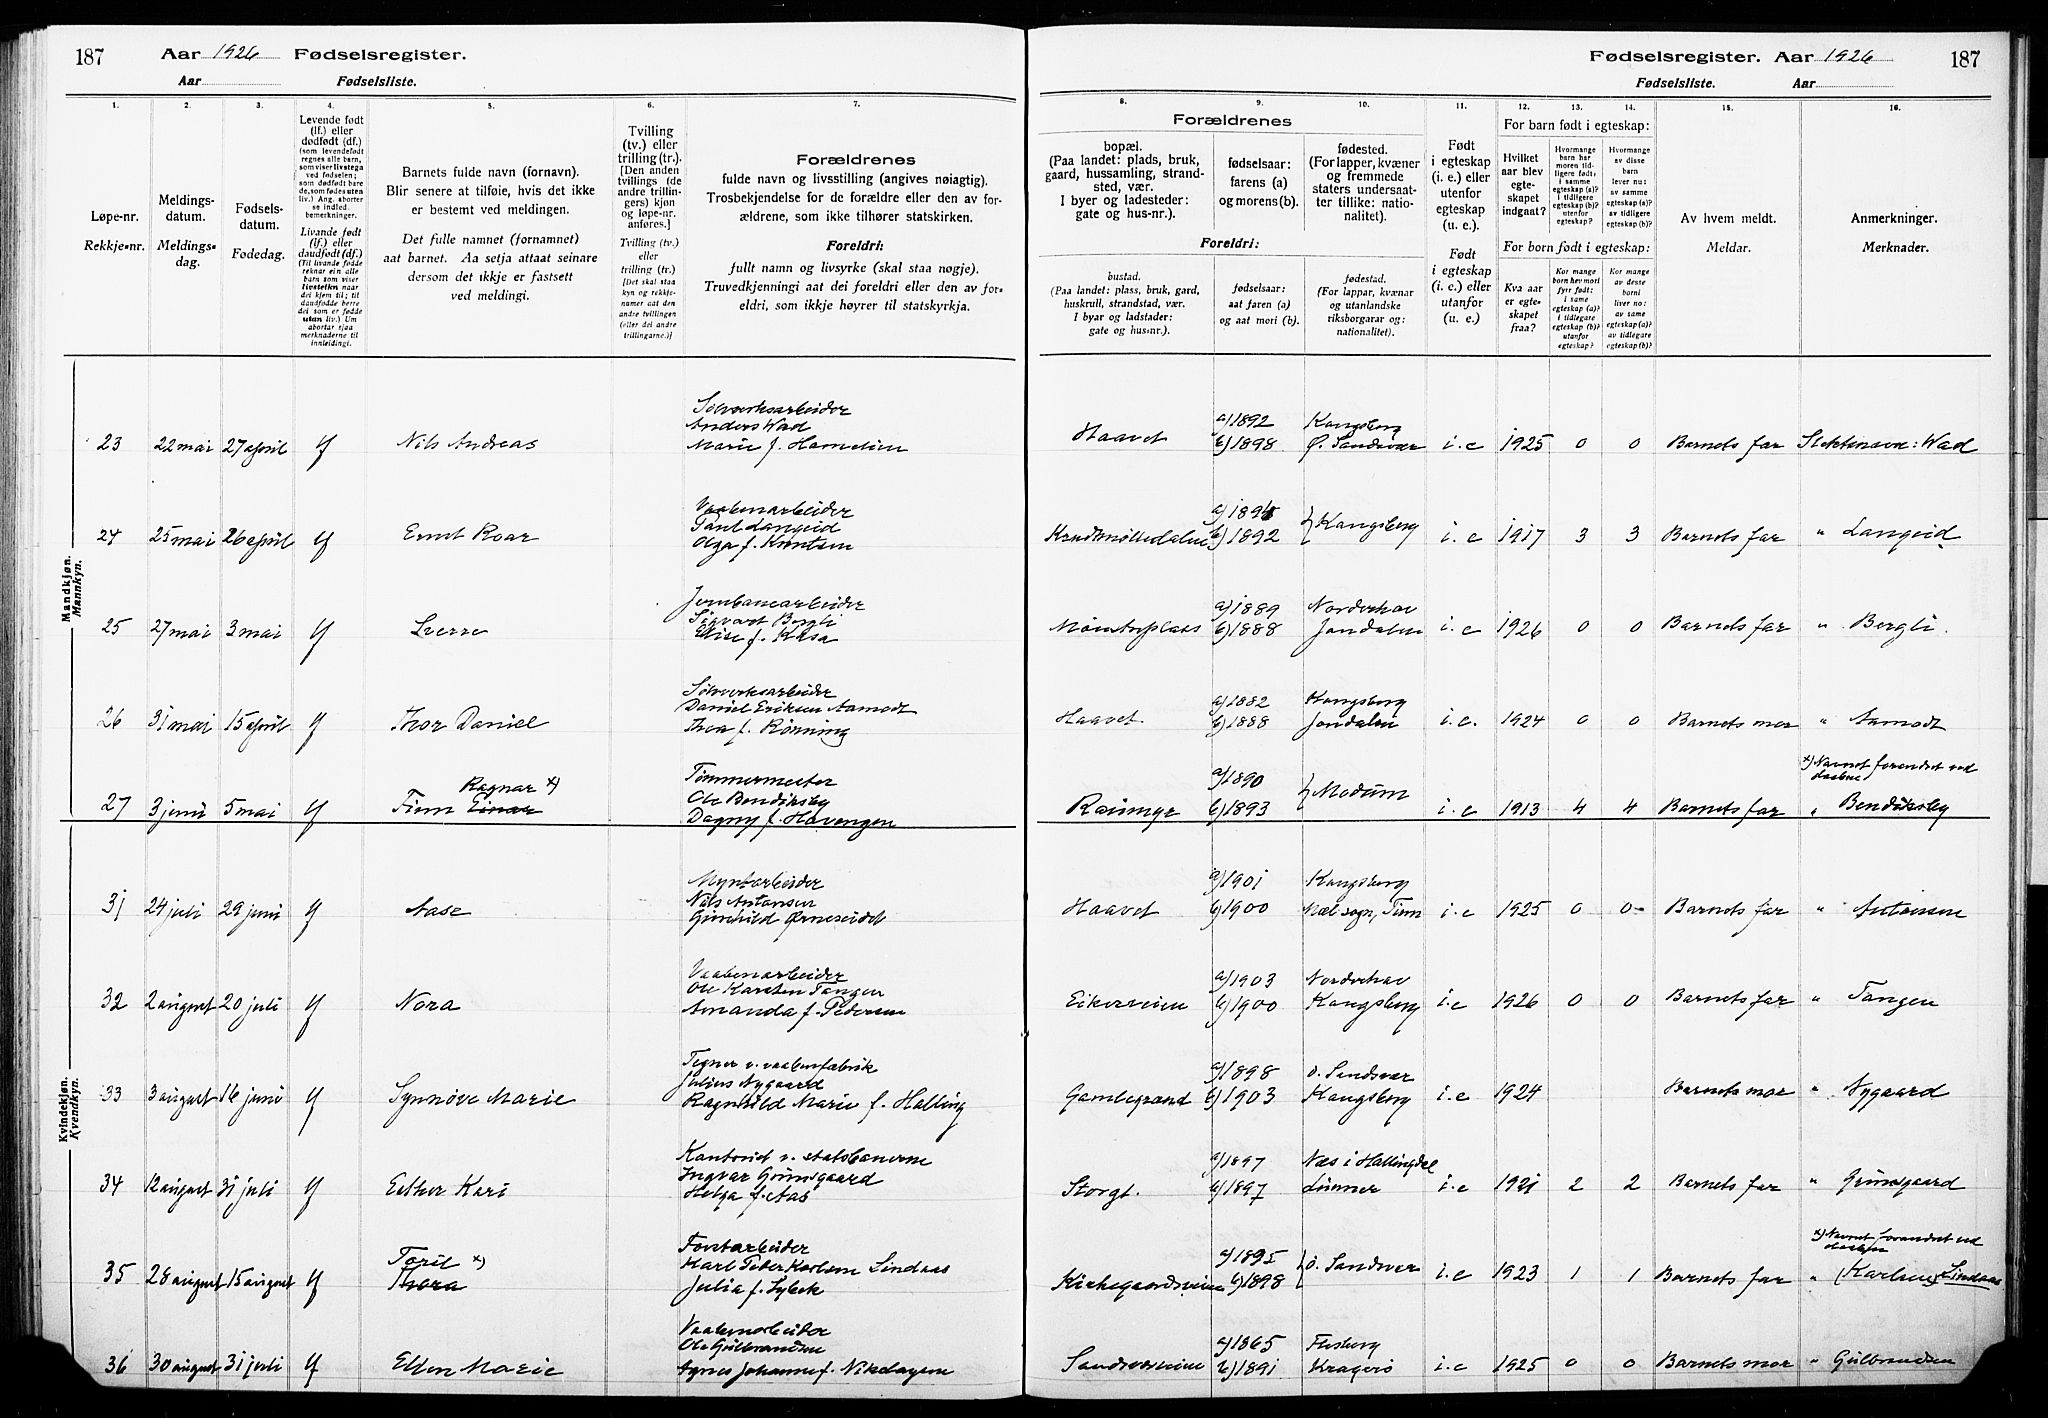 187 Aar 1926 Fødselsregister.
Aar Fødselsliste.
Fødselsregister. Aar 1926 187
Fødselsliste. Aar
1. 2. 3. 4. 5. 6. 7.
Løpe-nr.
Rekkje-nr.
Meldings-
datum.
Meldings-
dag.
Fødsels-
datum.
Fødedag.
Levende født
(lf.) eller
dødfødt (df.)
(som levendefødt
regnes alle barn,
som viser livstegn
ved fødselen;
som dødfødt bare
de, som fødes uten
liv.) Ang. aborter
se indled.
bemerkninger.
Livande født
(lf.) eller
daudfødt (df.)
(Til livande fødde
reknar ein alle
barn som viser
livsteikn naar
dei kjem til; til
daudfødde berre
dei som er fødde
utan liv.) Um
abortar sjaa
merknaderne til
innleidingi.
Barnets fulde navn (fornavn).
Blir senere at tilføie, hvis det ikke
er bestemt ved meldingen.
Det fulle namnet (fornamnet)
aat barnet. Aa setja attaat seinare
dersom det ikkje er fastsett
ved meldingi.
Tvilling
(tv.) eller
trilling (tr.).
[Den anden
tvillings (de
andre trillin-
gers) kjøn
og løpe-nr.
anføres.]
Tvilling (tv.)
eller
trilling (tr.)
[Det skal staa
kyn og rekkje-
numer aat den
andre tvillingen
(eller dei andre
trillingarne.)]
Forældrenes
fulde navn og livsstilling (angives nøiagtig).
Trosbekjendelse for de forældre eller den av for-
ældrene, som ikke tilhører statskirken.
Foreldri:
fullt namn og livsyrke (skal staa nøgje).
Truvedkjenningi aat dei foreldri eller den av for-
eldri, som ikkje høyrer til statskyrkja.
8. 9. 10. 11. 12. 13. 14. 15. 16.
Forældrenes
bopæl.
(Paa landet: plads, bruk,
gaard, hussamling, strand-
sted, vær.
I byer og ladesteder:
gate og hus-nr.).
fødselsaar:
farens (a)
og morens (b).
fødested.
(For lapper, kvæner
og fremmede
staters undersaat-
ter tillike: natio-
nalitet).
Foreldri:
bustad.
(Paa landet: plass, bruk, gard,
huskrull, strandstad, vær.
I byar og ladstader:
gate og hus-nr.).
fødselsaar:
aat faren (a)
og aat mori (b).
fødestad.
(For lappar, kvænar
og utanlandske
riksborgarar og:
nationalitet).
Født
i egteskap
(i. e.) eller
utenfor
egteskap
(u. e.).
Født
i egteskap
(i. e.) eller
utanfor
(u. e.)
For barn født i egteskap:
Hvilket
aar blev
egte-
skapet
indgaat?
Hvormange
barn har
moren tid-
ligere født:
i samme
egteskap (a)?
i tidligere
egteskap (b)?
utenfor
egteskap?
Hvormange
av disse
barn
lever nu:
av samme
egteskap (a)?
av tidligere
egteskap (b)?
For born født i egteskap:
Kva aar
er egte-
skapet
fraa?
Kor mange
born hev mori
fyrr født:
i same
egteskap (a)?
i tidlegare
egteskap (b)?
utanfor
egteskap?
Kor mange
av desse
borni
liver no:
av same
egteskap (a)?
av tidlegare
egteskap (b)?
Av hvem meldt.
Meldar.
Anmerkninger.
Merknader.
Mandkjøn.
Mannkyn.
Sølvverksarbeider
Anders Wad
23 22 mai 27 april lf Nils Andreas Marie f. Hamelin
a) 1892 Kongsberg
Haavet b) 1898 Ø. Sandsvær i. e 1925 0 0 Barnets far Slektsnavn: Wad
Vaabenarbeider
24 25 mai 26 april lf Ernst Roar Olga f. Knutsen
b) 1892 Kongsberg i. e 1917 3 3 Barnets far " Langeid
Jernbanearbeider
Sigvart Bergli
25 27 mai 3 mai lf Sverre Elise f. Kasa
a) 1889 Norderhov
b) 1888 Jondalen i. e 1926 0 0 Barnets far " Bergli.
Sølvverksarbeider
Daniel Eriksen Aamodt
26 31 mai 15 april lf Thor Daniel Thea f. Rønning
a) 1882 Kongsberg
Haavet. b) 1888 Jondalen i. e. 1924 0 0 Barnets mor " Aamodt
Tømmermester
Ragnar x) Ole Bendiksby
27 3 juni 5 mai lf Finn Einar Dagny f. Hovengen
a) 1890 x) Navnet forandret ved
daaben
Raumyr b) 1893 Modum i. e 1913 4 4 Barnets far " Bendiksby
Kvindekjøn.
Kvendkyn.
Myntarbeider
Nils Antonsen
31 24 juli 29 juni lf Aase Gunhild Ørneseidet
a) 1901 Kongsberg
Haavet b) 1900 Mæl sogn, Tinn i. e 1925 0 0 Barnets far " Antonsen
Vaabenarbeider
Ole Karsten Tangen
32 2 august 20 juli lf Nora Amanda f. Pedersen
a) 1903 Norderhov
Eikerveien b) 1900 Kongsberg i. e 1926 0 0 Barnets far " Tangen
Tegner v. vaabenfabrik
Julius Nygaard
33 3 august 16 juni lf Synnøve Marie Ragnhild Marie f. Halling
a) 1898 ø. Sandsvær
Gamlegrænd b) 1903 Kongsberg i. e 1924 Barnets mor " Nygaard
Kontorist v. statsbanerne
Ingvar Grimsgaard
34 12 august 31 juli lf Esther Kari Helga f. Aas
a) 1897 Næs i Hallingdal
Storgt. b) 1897 Lunner i. e 1921 2 2 Barnets far " Grimsgaard
Forstarbeider
Toril x) Karl Peter Karlsen Lindaas
35 28 august 15 august lf Thora Julia f. Lybek
a) 1895 x) Navnet forandret ved
daaben
Kirkegaardsveien b) 1898 ø. Sandsvær i. e 1923 1 1 Barnets far " (Karlsen) Lindaas
Vaabenarbeider
Ole Gulbrandsen
36 30 august 31 juli lf Ellen Marie Agnes Johanne f. Nikolaysen
a) 1865 Flesberg
Sandsværveien b) 1891 Kragerø i. e 1925 0 0 Barnets mor " Gulbrandsen